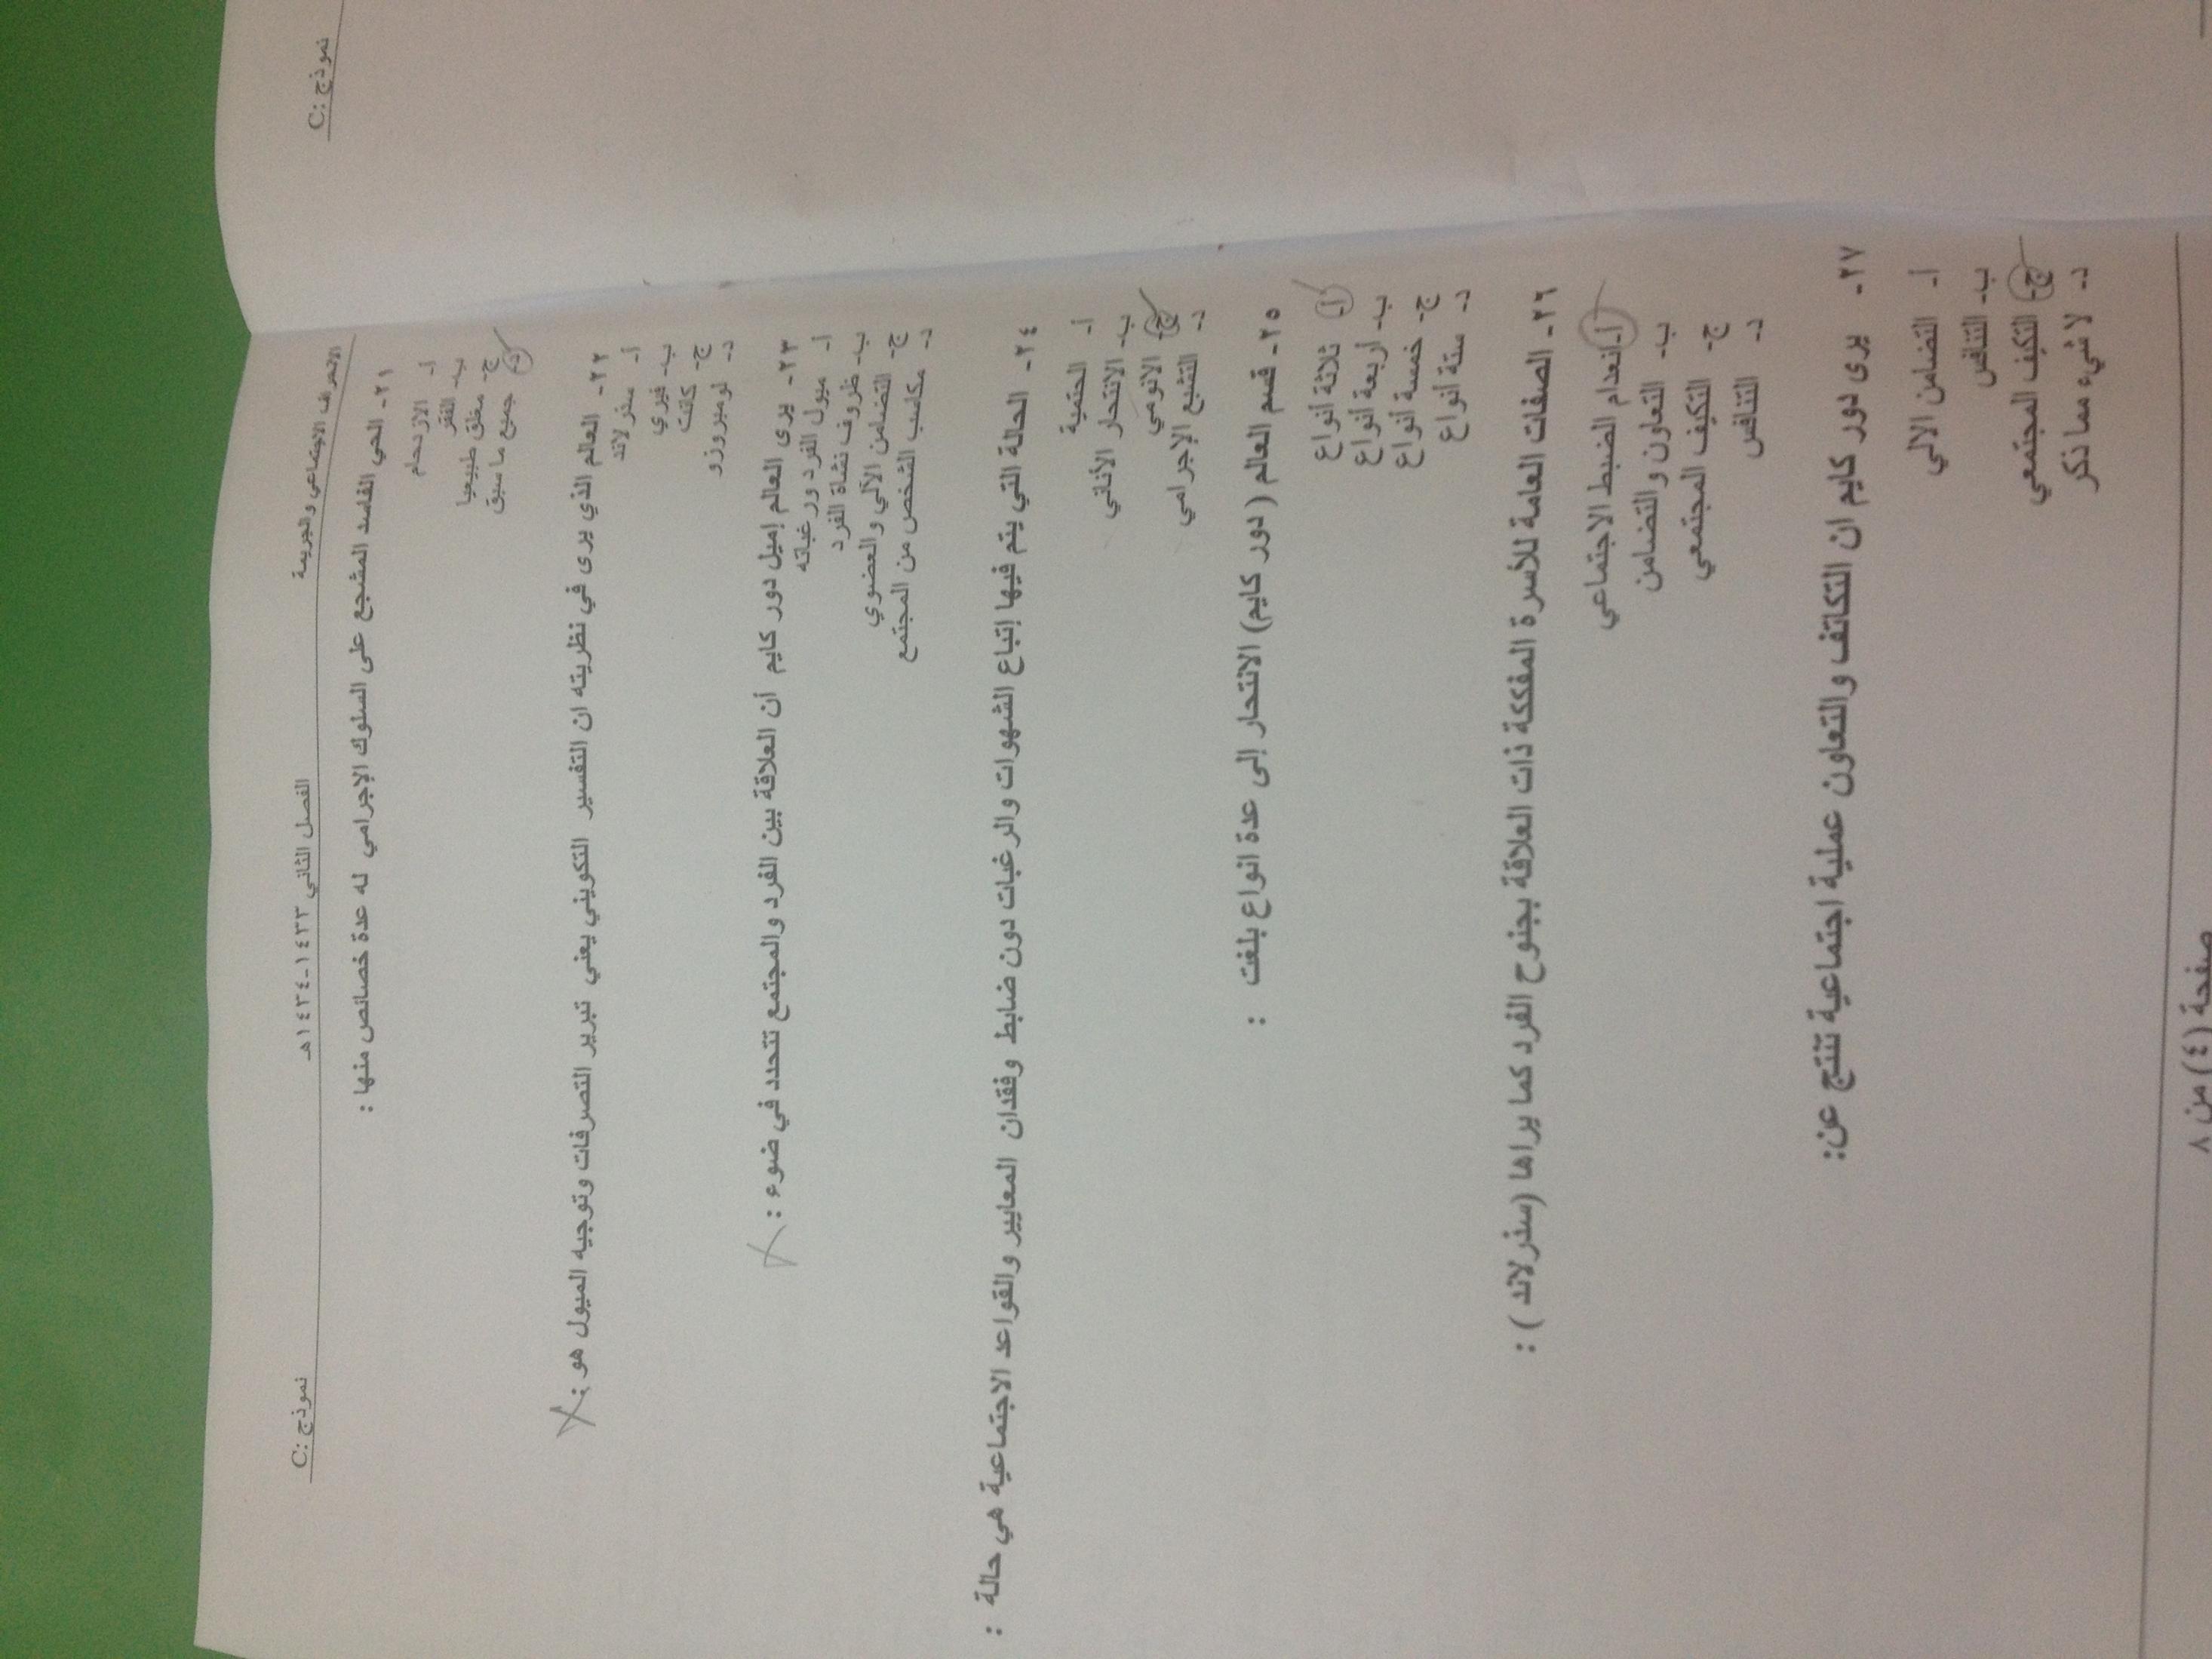 الانحراف الاجتماعي والجريمة الفصل الثاني ١٤٣٣-١٤٣٤هـ نموذج :C
٢١- الحي الفاسد المشجع على السلوك الإجرامي له عدة خصائص منها :
أ- الازدحام
ب- الفقر
ج- مغلق طبيعيا
د- جميع ما سبق
٢٢- العالم الذي يرى في نظريته ان التفسير التكويني يعني تبرير التصرفات وتوجيه الميول هو :
أ- سذرلاند
ب- فيري
ج- كانت
د- لومبروزو
٢٣- يرى العالم إميل دور كايم أن العلاقة بين الفرد والمجتمع تتحدد في ضوء :
أ- ميول الفرد ورغباته
ب- ظروف نشأة الفرد
ج- التضامن الآلي والعضوي
د- مكاسب الشخص من المجتمع
٢٤- الحالة التي يتم فيها إتباع الشهوات والرغبات دون ضابط وفقدان المعايير والقواعد الاجتماعية هي حالة :
أ- الحتمية
ب- الانتحار الأناني
ج- الانومي
د- التشبع الإجرامي
٢٥- قسم العالم ( دور كايم) الانتحار إلى عدة انواع بلغت :
أ- ثلاثة أنواع
ب- أربعة أنواع
ج- خمسة أنواع
د- ستة أنواع
٢٦- الصفات العامة للأسرة المفككة ذات العلاقة بجنوح الفرد كما يراها (سذرلاند ) :
أ- انعدام الضبط الاجتماعي
ب- التعاون والتضامن
ج- التكيف المجتمعي
د- التنافس
٢٧- يرى دور كايم ان التكاتف والتعاون عملية اجتماعية تنتج عن:
أ- التضامن الالي
ب- التنافس
ج- التكيف المجتمعي
د- لا شيء مما ذكر
صفحة (٤) من ٨
نموذج :C